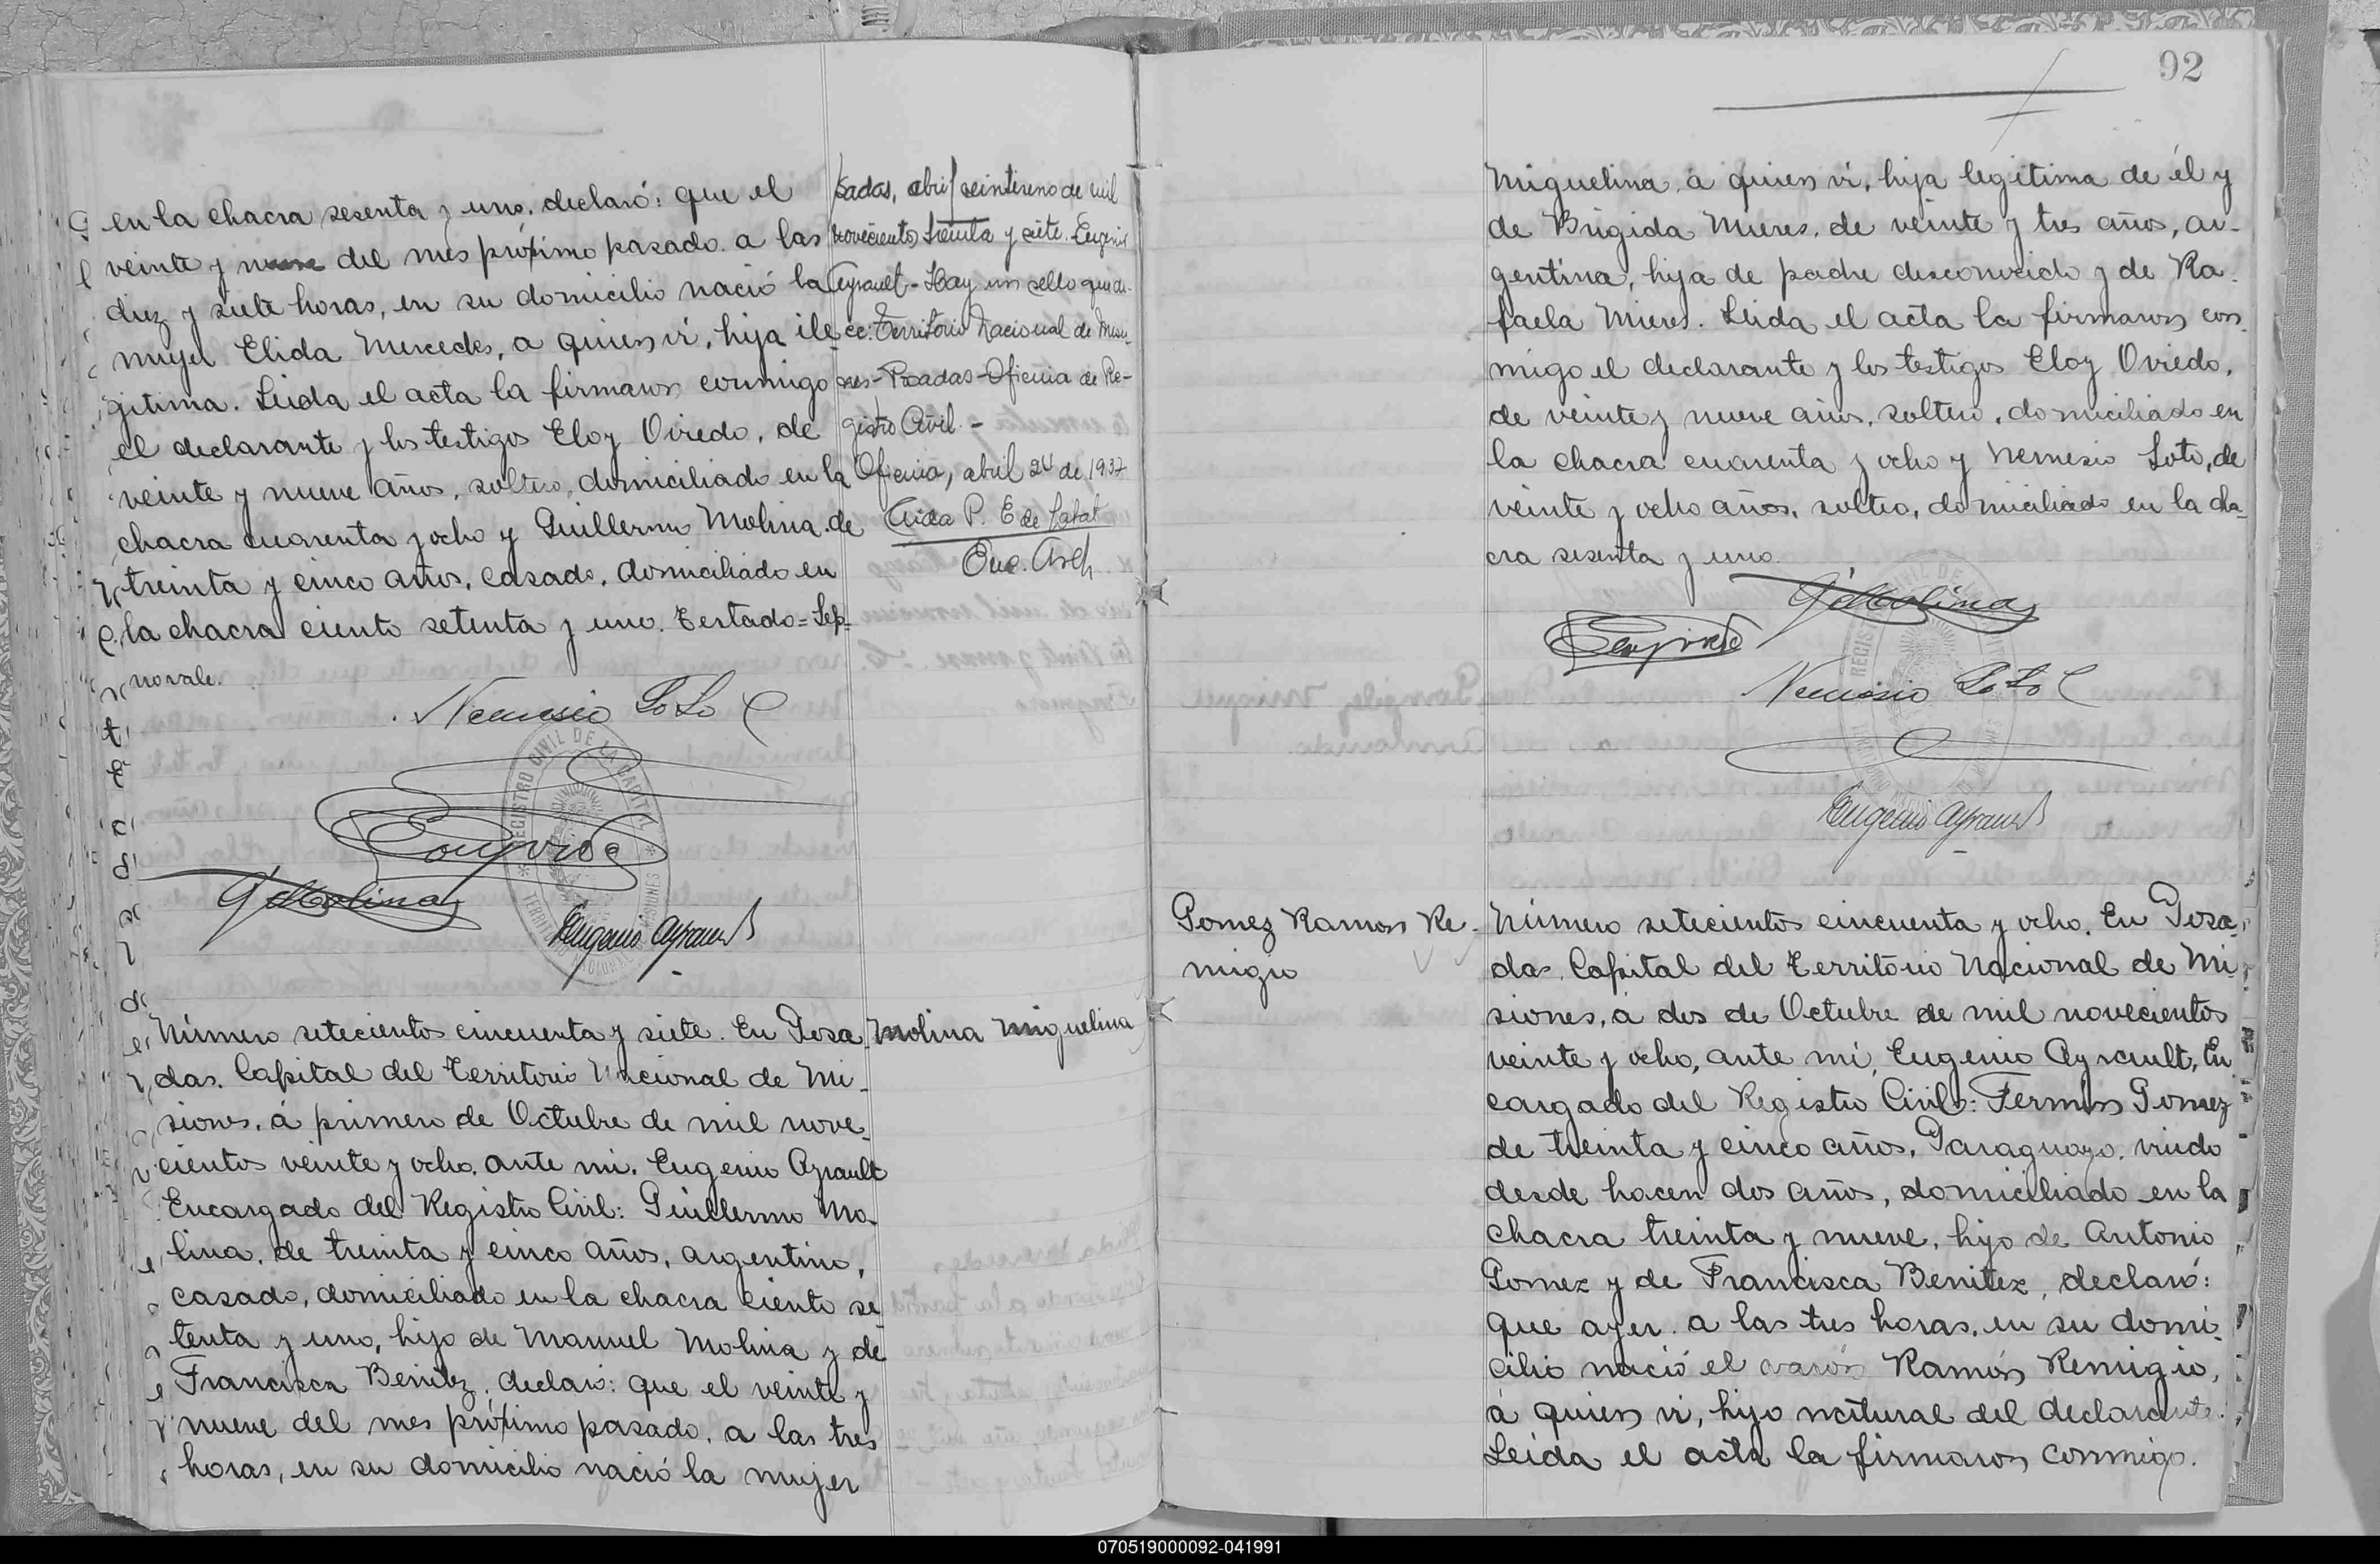 en la chacra sesenta y uno, declaró: que el
veinte y nueve del mes próximo pasado, a las
diez y siete horas, en su domicilio nació la
mujer Elida Mercedes, a quien ví, hija ile
gitima. Leida el acta la firmaron conmigo
el declarante y los testigos Eloy Oviedo, de
veinte y nueve años, soltero, domiciliado en la
chacra cuarenta y ocho y Guillermo Molina, de
treinta y cinco años, casado, domiciliado en
la chacra ciento setenta y uno. Testado=Sep=
no vale.
Nemesio Soto
G Molina
Eugenio Ayrault
sadas, abril veintiuno de mil
novecientos treinta y siete. Eugenio
Ayrault - Hay un sello que di-
ce: Territorio Nacional de Misio-
nes - Posadas - Oficina de Re-
gistro Civil. -
Oficina, abril 24 de 1937
Aida P. E de
Enc. Arch
REGISTRO CIVIL DE LA CAPITAL
Número setecientos cincuenta y siete. En Posa
das, Capital del Territorio Nacional de Mi-
siones, á primero de Octubre de mil nove-
cientos veinte y ocho, ante mi, Eugenio Ayrault
Encargado del Registro Civil: Guillermo Mo-
lina, de treinta y cinco años, argentino,
casado, domiciliado en la chacra ciento se
tenta y uno, hijo de Manuel Molina y de
Francisca Benitez, declaró: que el veinte y
nueve del mes próximo pasado, a las tres
horas, en su domicilio nació la mujer
Molina Miguelina
92
Miguelina, á quien ví, hija legitima de él y
de Brigida Mieres, de veinte y tres años, ar-
gentina, hija de padre desconocido y de Ra-
faela Mieres. Leida el acta la firmaron con-
migo el declarante y los testigos Eloy Oviedo,
de veinte y nueve años, soltero, domiciliado en
la chacra cuarenta y ocho y Nemesio Soto, de
veinte y ocho años, soltero, domiciliado en la cha-
cra sesenta y uno.
G Molina
Nemesio Soto
Eugenio Ayrault
Gomez Ramon Re-
migio
Número setecientos cincuenta y ocho. En Posa-
das, Capital del Territorio Nacional de Mi-
siones, á dos de Octubre de mil novecientos
veinte y ocho, ante mí, Eugenio Ayrault, En
cargado del Registro Civil: Fermin Gomez
de treinta y cinco años, Paraguayo, viudo
desde hacen dos años, domiciliado en la
chacra treinta y nueve, hijo de Antonio
Gomez y de Francisca Benitez, declaró:
que ayer, a las tres horas, en su domi-
cilio nació el varón Ramón Remigio,
á quien ví, hijo natural del declarante.
Leida el acta la firmaron conmigo.
070519000092-041991